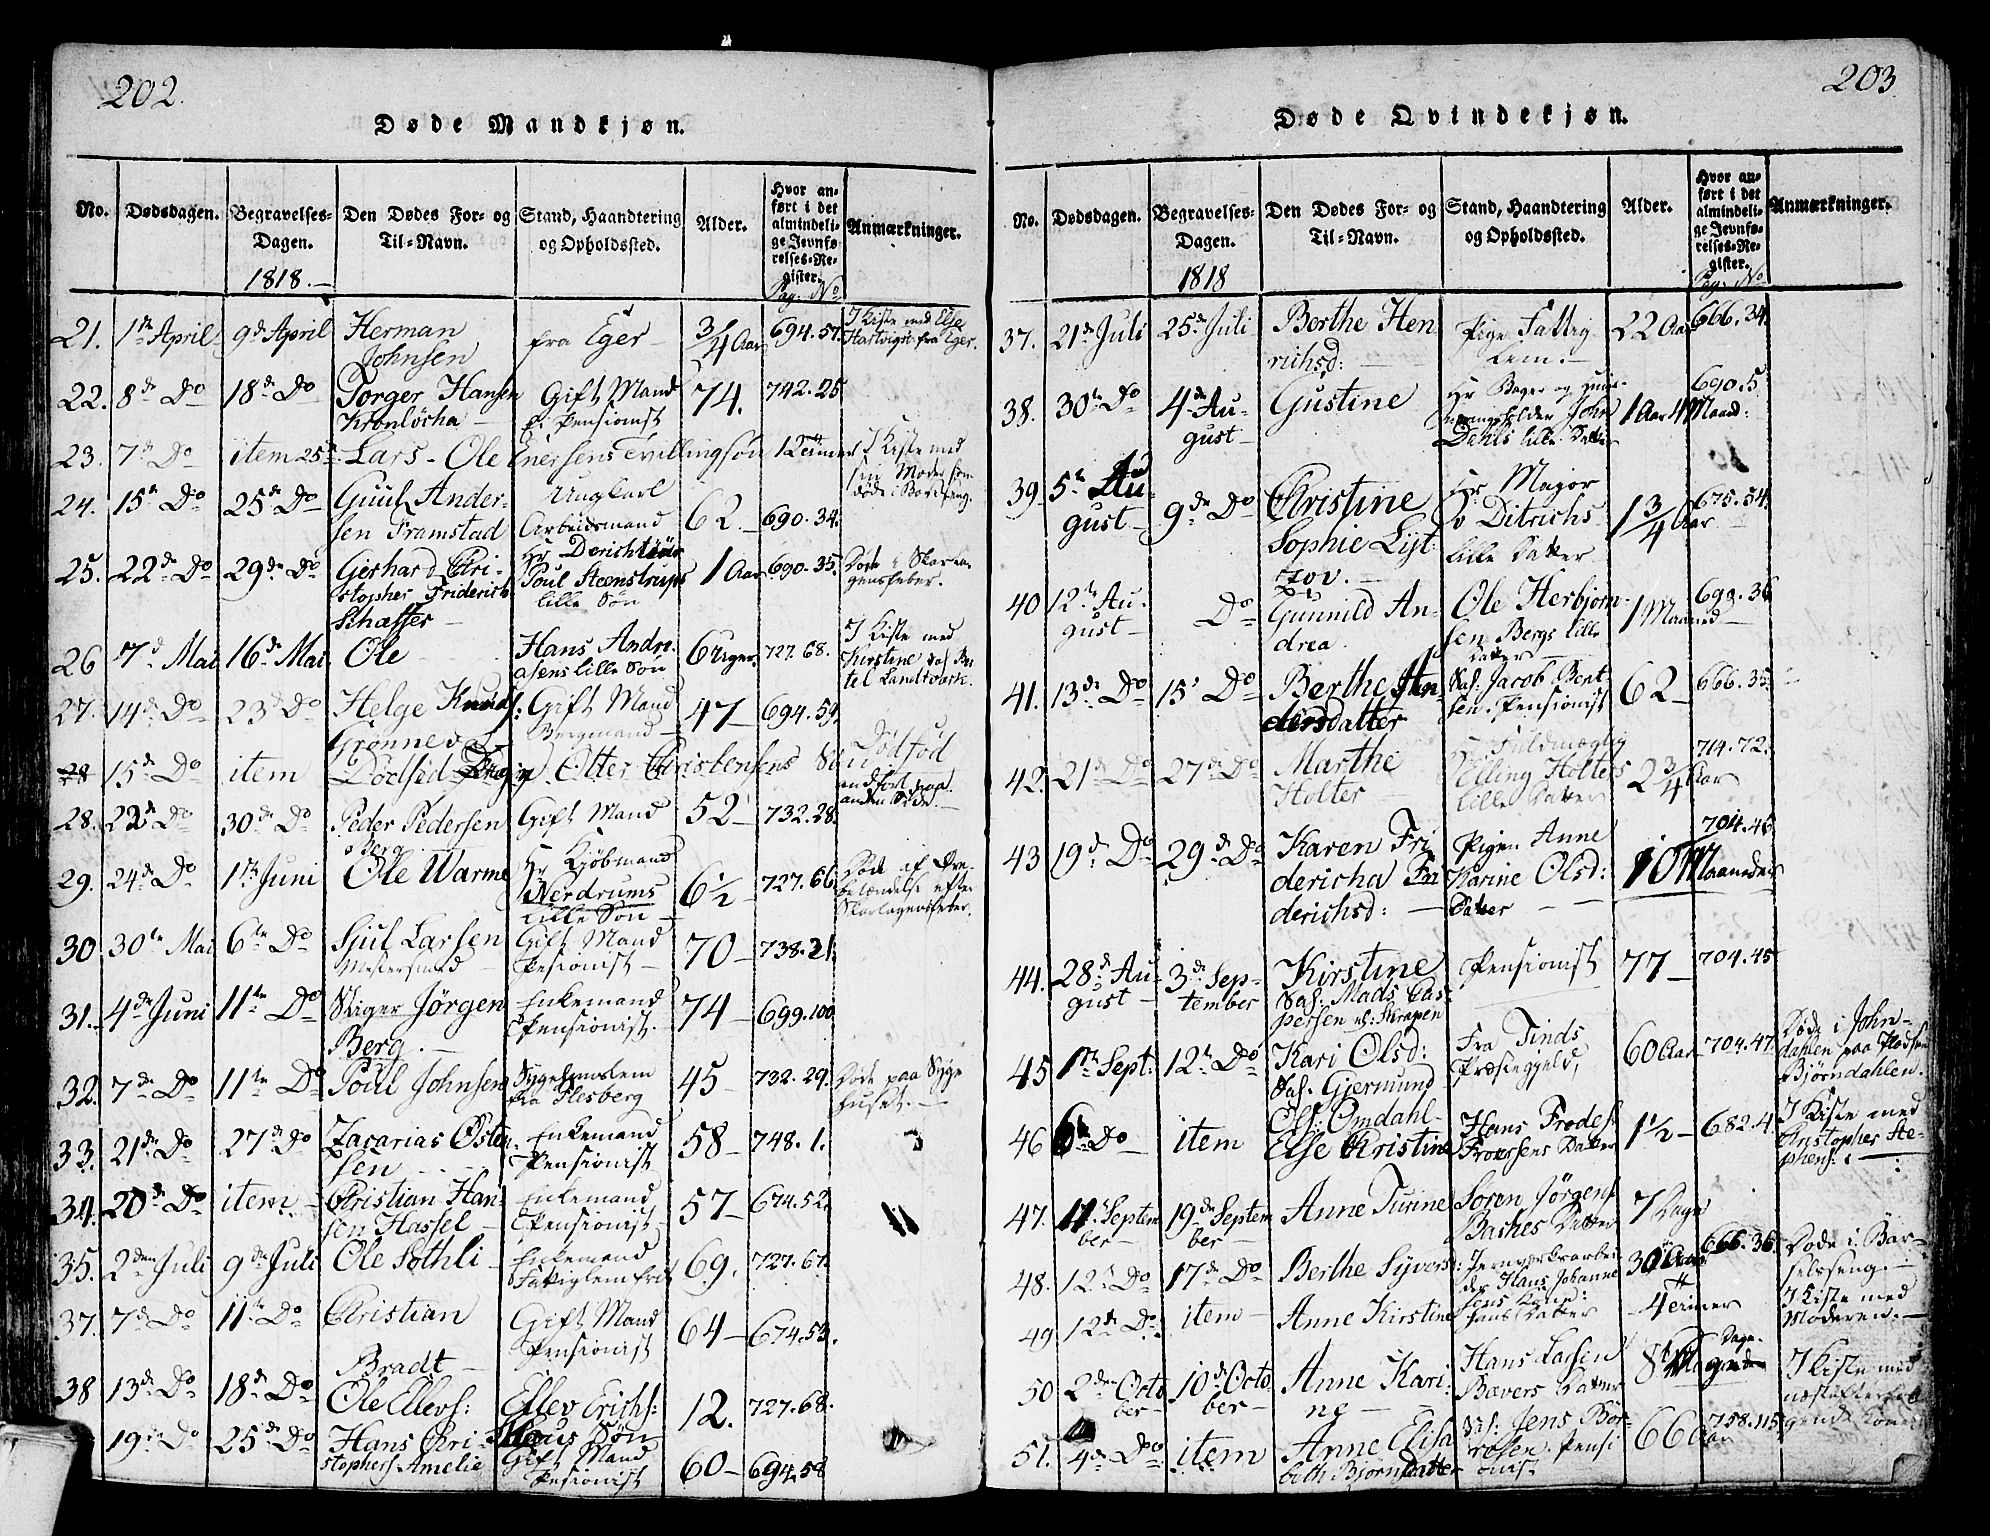 202.
Døde Mandkjøn.
No.
Dødsdagen.
Begravelses-Dagen.
Den Dødes For- og Til-Navn.
Stand, Haandtering og Opholdssted.
Alder.
Hvor anført i det almindelige Jevnførelses-Register.
Anmærkninger.
1818.
Pag. No
21. 1te April 9de April Herman Johnsen fra Eger 3/4 Aar 694.57. I Kiste med Else Hartvigst: fra Eger.
22. 8de Do 18de Do Torger Hansen Kronløcha Gift Mand Pensionist 74. 742.25
23. 7de Do item 25de Lars - Ole Enersens tvillingsøn 12 timer I Kiste med sin Moder som døde i Barselseng.
24. 15de Do 25de Do Guul Andersen Framstad Ungkarl Arbeidsmand 62 690.34.
25. 22de Do 29de Do Gerhard Christopher Friderich Schaffer Hr Poul Steenstrups lille Søn 1 Aar 690.35. Døde i Skarlagensfeber.
26 7de Mai 16de Mai Ole Hans Andreasens lille Søn 6 Uger 727.68. I Kiste med Kirstine
27. 14de Do 23de Do Helge Knuds: Grønnevol Gift Mand Bergmand 47 694.59.
28 15de Do item Dødfød Dreng Otter Christensens Søn Dødfød anført paa anden Side.
28. 22de Do 30de Do Peder Pedersen Berg Gift Mand 52 732.28.
29. 24de Do 1te Juni Ole Warme Hr Kjøbmand Nerdrums lille Søn 6 1/2 727.66 Døde af Betændelse efter Skarlagensfeber.
30 30te Mai 6te Do Sjul Larsen Mestersmed Gift Mand Pesionist 70 738.21.
31. 4de Juni 11te Do Stiger Jørgen Berg. Enkemand Pensionist. 74 699.100
32. 7de Do 11te Do Poul Johnsen Sygelem fra Flesberg 45 732.29. Døde paa Sygehuset.
33. 21de Do 27de Do Zacarias Østensen Enkemand Pensionist 58 748.1.
34. 20de Do item Christian Hansen Hassel Enkemand Pensionist 57 674.52.
35. 2den Juli 9de Juli Ole Sothli Enkemand Fattiglem 69. 727.67.
37. 7de Do 11te Do Christian Bradt Gift Mand Pensionist 64 674.53.
38 13de Do 18de Do Ole Ellevs: Ellev Erichs: Søn 12. 727.68.
19de Do 25de Do Hans Christophers: Amelie Gift Mand Pensionist 60 694.58
203
Døde Qvindekjøn.
No.
Dødsdagen.
Begravelses-Dagen.
Den Dødes For- og Til-Navn.
Stand, Haandtering og Opholdssted.
Alder.
Hvor anført i det almindelige Jevnførelses-Register.
Anmærkninger.
1818
Pag. No
37. 21de Juli 25de Juli Berthe Henrichsd: Pige Fattiglem. 22 Aar 666.34.
38. 30te Do 4de August Gustine Hr Bager og John Dahls lille Datter 1 Aar 4 Maand: 690.5
39. 5te August 9de Do Christine Sophie Lytzov. Hr Major v Ditrichs lille Datter 1 3/4 Aar 675.34.
40 12te August Do Gunnild Andrea Ole Herbjørnsen Bergs lille Datter 1 Maaned 690.36
41. 13de Do 15de Do Berthe Andersdatter Sal: Jacob Bentsen. Pensionist 62 666.35
42. 21de Do 27de Do Marthe Holter Hr Fuldmægtig Elling Holters lille Datter 2 3/4 Aar 714.72.
43 19de Do 29de Do Karen Fridericha Friderichsd: Pigen Anne Karine Olsd: Datter 10 Maaneder 704.46
44. 28de August 3de September Kirstine Sal: Mads Caspersen Pensionist 77 704.45
45 1te Sept. 12te Do Kari Olsd: Sal: Gjermund Ols: Omdahl Fra Tinds Præstegjeld, 60 Aar 704.47 Døde i Johndahlen paa Bjørndahlen.
46 6te Do item Else Christine Hans Frodes: Datter 1 1/2 682.4. I Kiste med Christopher Stephens:
47. 11te September 19de September Anne Turine Søren Jørgens: Baches Datter 7 Dage
48. 12te Do 17de Do Berthe Syvers: Jernværksarbeider Hans Johannesens Kone: 30 Aar 666.36 Døde i Barselsseng.
49 12de Do item Anne Kirstine Datter 4 timer I Kiste med Moderen.
50 2den October 10de October Anne Karine Hans Larsen Bævers Datter 8 Dage. I Kiste med næstefterfølgende Kone
51. 4de Do item Anne Elisabeth Bjørnsdatter Sal: Jens Børresen. Pensionist 66 Aar 758.115